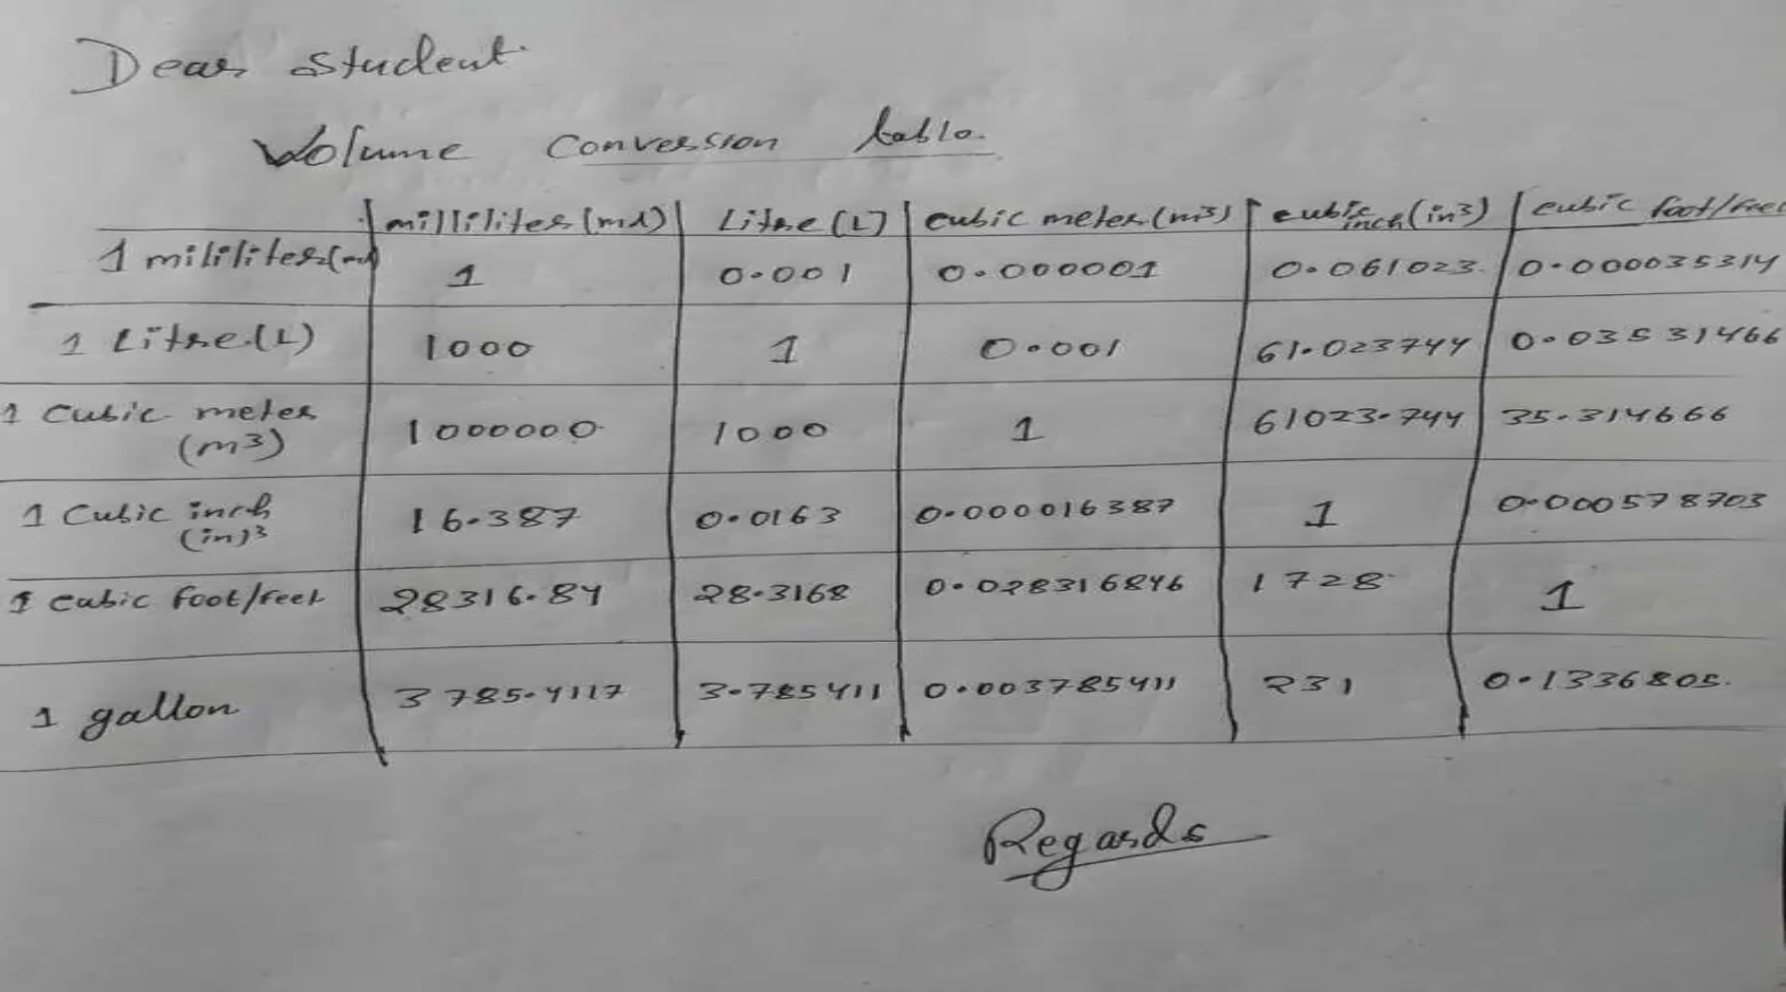 Dear student
Volume conversion table.
milliliter (ml) Litre (L) cubic meter (m3) cubic inch (in3) cubic foot/feet
1 mililiter (ml) 1 0.001 0.000001 0.061023 0.000035314
1 Litre (L) 1000 1 0.001 61.023744 0.03531466
1 Cubic meter (m3) 1000000 1000 1 61023.744 35.314666
1 Cubic inch (in)3 16.387 0.0163 0.000016387 1 0.000578703
1 cubic foot/feet 28316.84 28.3168 0.028316846 1728 1
1 gallon 3785.4117 3.785411 0.003785411 231 0.1336805.
Regards